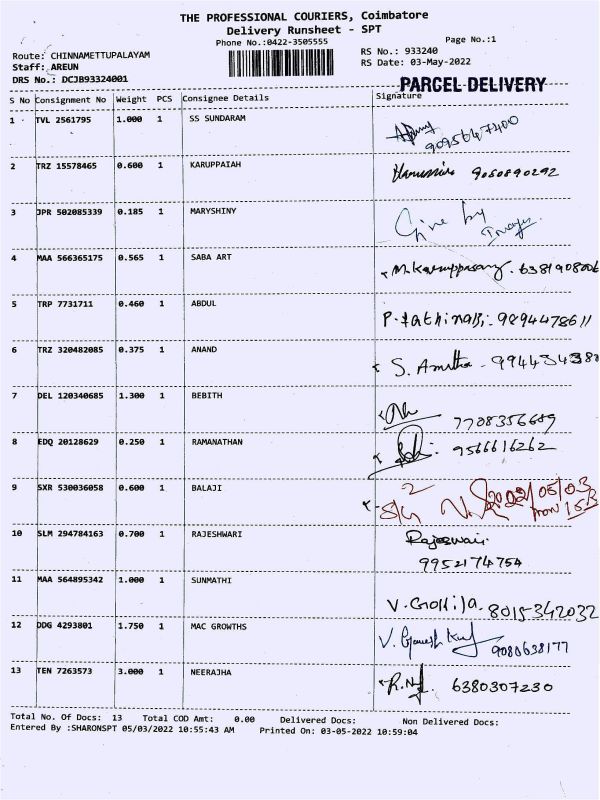 THE PROFESSIONAL COURIERS, Coimbatore
Delivery Runsheet - SPT
Phone No.:0422-3505555
Page No.:1
Route: CHINNAMETTUPALAYAM
RS No.: 933240
Staff: AREUN
RS Date: 03-May-2022
DRS No.: DCJB93324001
PARCEL DELIVERY
S No Consignment No Weight PCS Consignee Details Signature
1 TVL 2561795 1.000 1 SS SUNDARAM
9095647400
2 TRZ 15578465 0.600 1 KARUPPAIAH 9050890292
3 JPR 502085339 0.185 1 MARYSHINY
Give by
4 MAA 566365175 0.565 1 SABA ART M.Karuppasamy. 6381908006
5 TRP 7731711 0.460 1 ABDUL P. fathinabi. 9894478611
6 TRZ 320482085 0.375 1 ANAND S. Amutha - 994434380
7 DEL 120340685 1.300 1 BEBITH 7708356689
8 EDQ 20128629 0.250 1 RAMANATHAN 9566616262
9 SXR 530036058 0.600 1 BALAJI 2022/05/03
10 SLM 294784163 0.700 1 RAJESHWARI Rajeswari
9952174754
11 MAA 564895342 1.000 1 SUNMATHI V. Gokila. 8015342032
12 DDG 4293801 1.750 1 MAC GROWTHS V. Ganesh Kumar 9080638177
13 TEN 7263573 3.000 1 NEERAJHA 6380307230
Total No. Of Docs: 13 Total COD Amt: 0.00 Delivered Docs: Non Delivered Docs:
Entered By :SHARONSPT 05/03/2022 10:55:43 AM Printed On: 03-05-2022 10:59:04